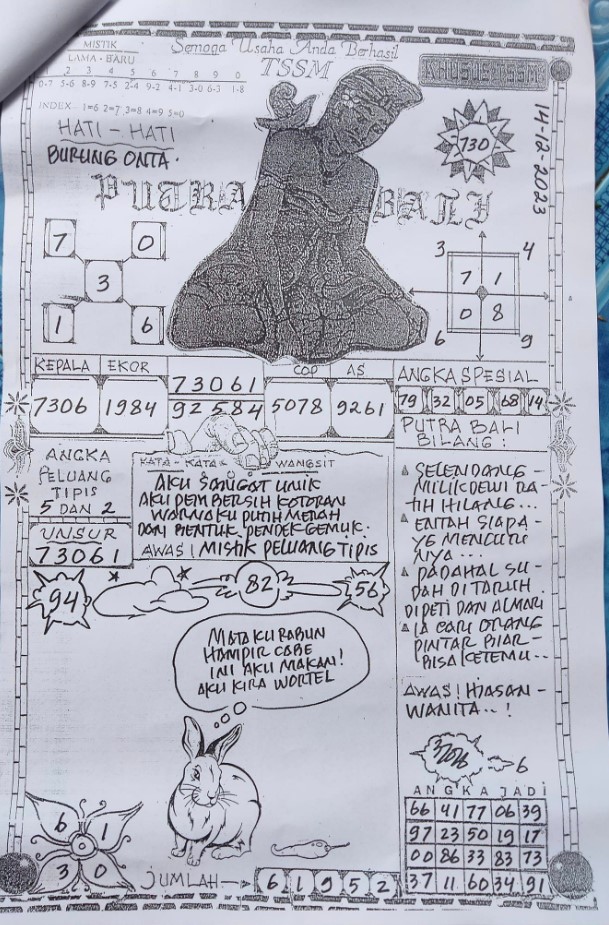 MISTIK
LAMA - BARU
2 3 4 5 6 7 8 9 0
0-7 5-6 8-9 7-5 2-4 9-2 4-1 3-0 6-3 1-8
INDEX - 1=6 2=7 3=8 4=9 5=0
Semoga Usaha Anda Berhasil
TSSM
KHUSUS TSSM
HATI - HATI
BURUNG ONTA.
730
14-12-2023
PUTRA BALI
7 0
3
1 6
3 4
7 1
0 8
6 9
KEPALA EKOR COP AS
7306 1984 73061 5078 9261
92584
ANGKA SPESIAL
79 32 05 68 14
PUTRA BALI
BILANG :
ANGKA
PELUANG
TIPIS
5 DAN 2
UNSUR
73061
KATA - KATA WANGSIT
AKU SANGAT UNIK
AKU PEMBERSIH KOTORAN
WARNAKU PUTIH MERAH
DAN BENTUK PENDEK GEMUK.
AWAS! MISTIK PELUANG TIPIS
SELENDANG -
MILIK DEWI RA-
TIH HILANG...
ENTAH SIAPA -
YG MENCURI
NYA ...
PADAHAL SU-
DAH DI TARUH
DI PETI DAN ALMARI
IA CARI ORANG
PINTAR BIAR -
BISA KETEMU...
AWAS! HIASAN -
WANITA..!
94 82 56
MATAKU RABUN
HAMPIR CABE
INI AKU MAKAN!
AKU KIRA WORTEL
6
ANGKA JADI
66 41 77 06 39
97 23 50 19 17
00 86 33 83 73
37 11 60 34 91
6 1
3 0
JUMLAH 6 1 9 5 2